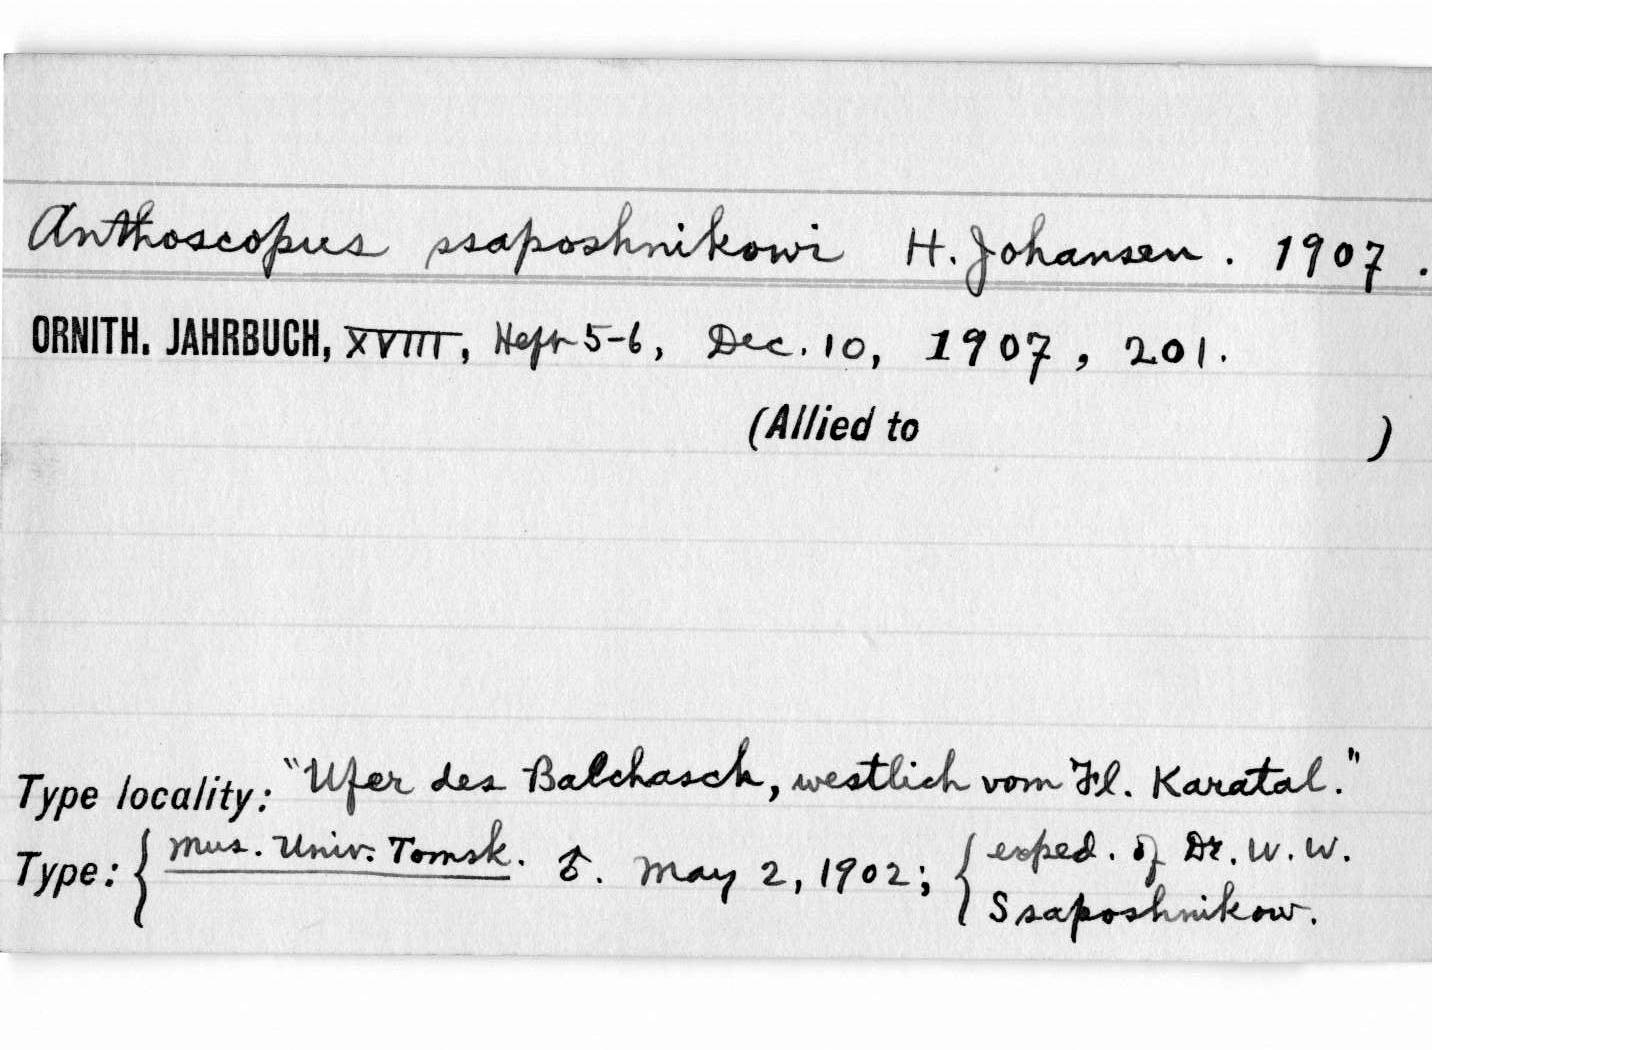 Anthoscopus ssaposhnikowi H. Johansen. 1907.
ORNITH. JAHRBUCH, XVIII, Heft 5-6, Dec. 10, 1907, 201.
(Allied to )
Type locality: "Ufer des Balchasch, westlich vom Fl. Karatal."
Type: { Mus. Univ. Tomsk. ♂. May 2, 1902; { exped. of Dr. W. W.
Ssaposhnikow.